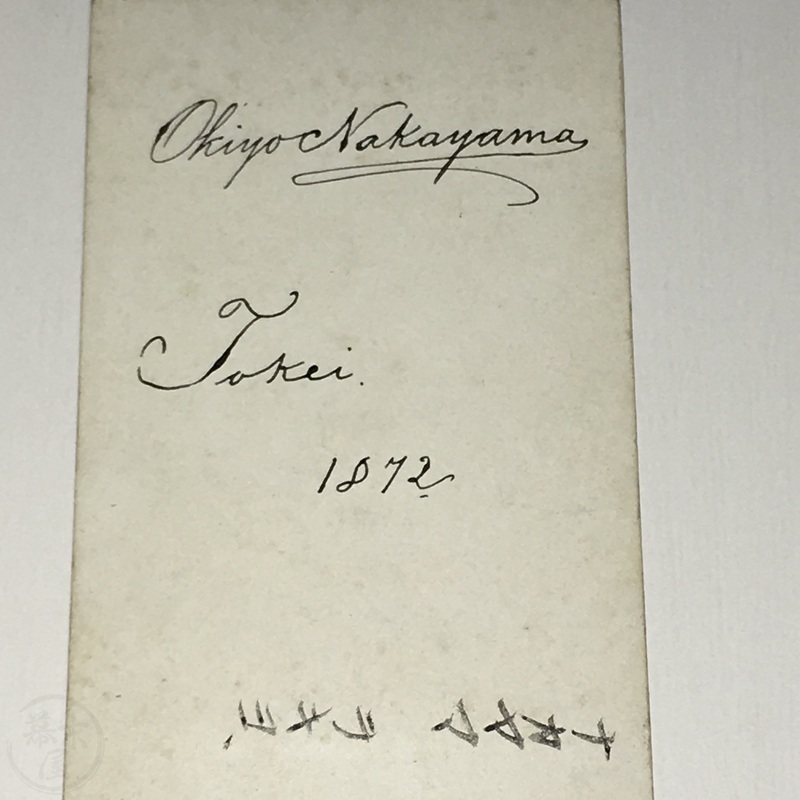 Okiyo Nakayama
Tokei.
1872
ナカヤマ ヲキヨ